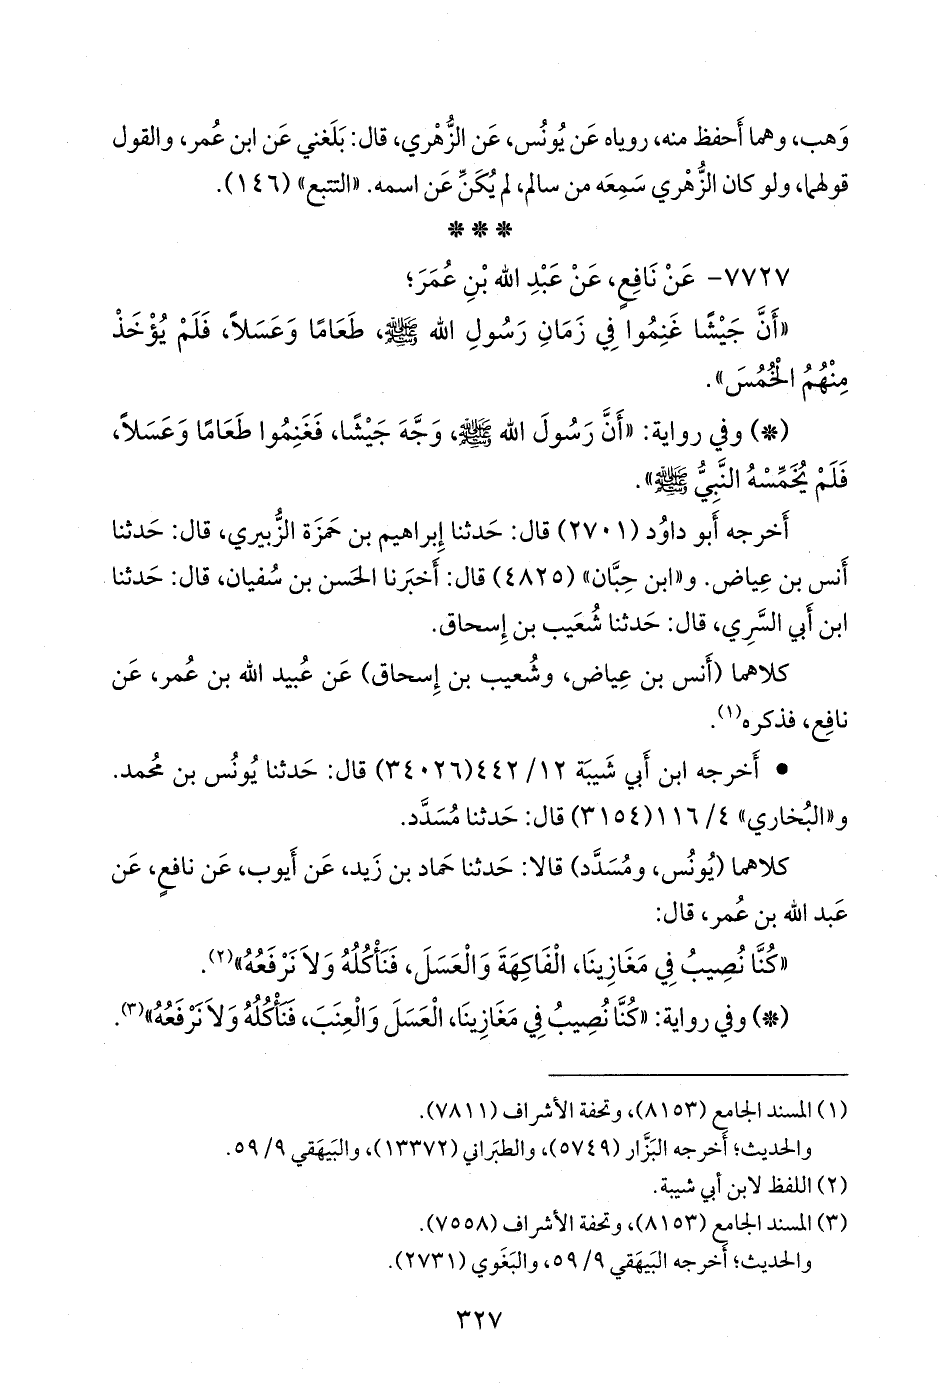 وَهب، وهما أَحفظ منه، روياه عَن يُونُس، عَن الزُّهْري، قال: بَلَغني عَن ابن عُمر، والقول
قولهما، ولو كان الزُّهْري سَمِعَه من سالم، لم يُكَنِّ عَن اسمه. «التتبع» (١٤٦).
* * *
٧٧٢٧- عَنْ نَافِعٍ، عَنْ عَبْدِ الله بْنِ عُمَرَ؛
«أَنَّ جَيْشًا غَنِمُوا فِي زَمَانِ رَسُولِ الله ﷺ، طَعَامًا وَعَسَلاً، فَلَمْ يُؤْخَذْ
مِنْهُمُ الْخُمُسَ».
(*) وفي رواية: «أَنَّ رَسُولَ الله ﷺ، وَجَّهَ جَيْشًا، فَغَنِمُوا طَعَامًا وَعَسَلاً،
فَلَمْ يُخَمِّسْهُ النَّبِيُّ ﷺ».
أَخرجه أَبو داوُد (٢٧٠١) قال: حَدثنا إِبراهيم بن حَمزَة الزُّبيري، قال: حَدثنا
أَنس بن عِياض. و«ابن حِبَّان» (٤٨٢٥) قال: أَخبَرنا الحَسن بن سُفيان، قال: حَدثنا
ابن أَبي السَّري، قال: حَدثنا شُعَيب بن إِسحاق.
كلاهما (أَنس بن عِياض، وشُعيب بن إِسحاق) عَن عُبيد الله بن عُمر، عَن
نافِع، فذكره(١).
• أَخرجه ابن أَبي شَيبَة ١٢/ ٤٤٢(٣٤٠٢٦) قال: حَدثنا يُونُس بن مُحمد.
و«البُخاري» ٤/ ١١٦(٣١٥٤) قال: حَدثنا مُسَدَّد.
كلاهما (يُونُس، ومُسَدَّد) قالا: حَدثنا حَماد بن زَيد، عَن أَيوب، عَن نافعٍ، عَن
عَبد الله بن عُمر، قال:
«كُنَّا نُصِيبُ فِي مَغَازِينَا، الْفَاكِهَةَ وَالْعَسَلَ، فَنَأْكُلُهُ وَلاَ نَرْفَعُهُ»(٢).
(*) وفي رواية: «كُنَّا نُصِيبُ فِي مَغَازِينَا، الْعَسَلَ وَالْعِنَبَ، فَنَأْكُلُهُ وَلاَ نَرْفَعُهُ»(٣).
(١) المسند الجامع (٨١٥٣)، وتحفة الأشراف (٧٨١١).
والحديث؛ أَخرجه البَزَّار (٥٧٤٩)، والطبَراني (١٣٣٧٢)، والبَيهَقي ٩/ ٥٩.
(٢) اللفظ لابن أَبي شيبة.
(٣) المسند الجامع (٨١٥٣)، وتحفة الأشراف (٧٥٥٨).
والحديث؛ أَخرجه البَيهَقي ٩/ ٥٩، والبَغَوي (٢٧٣١).
٣٢٧